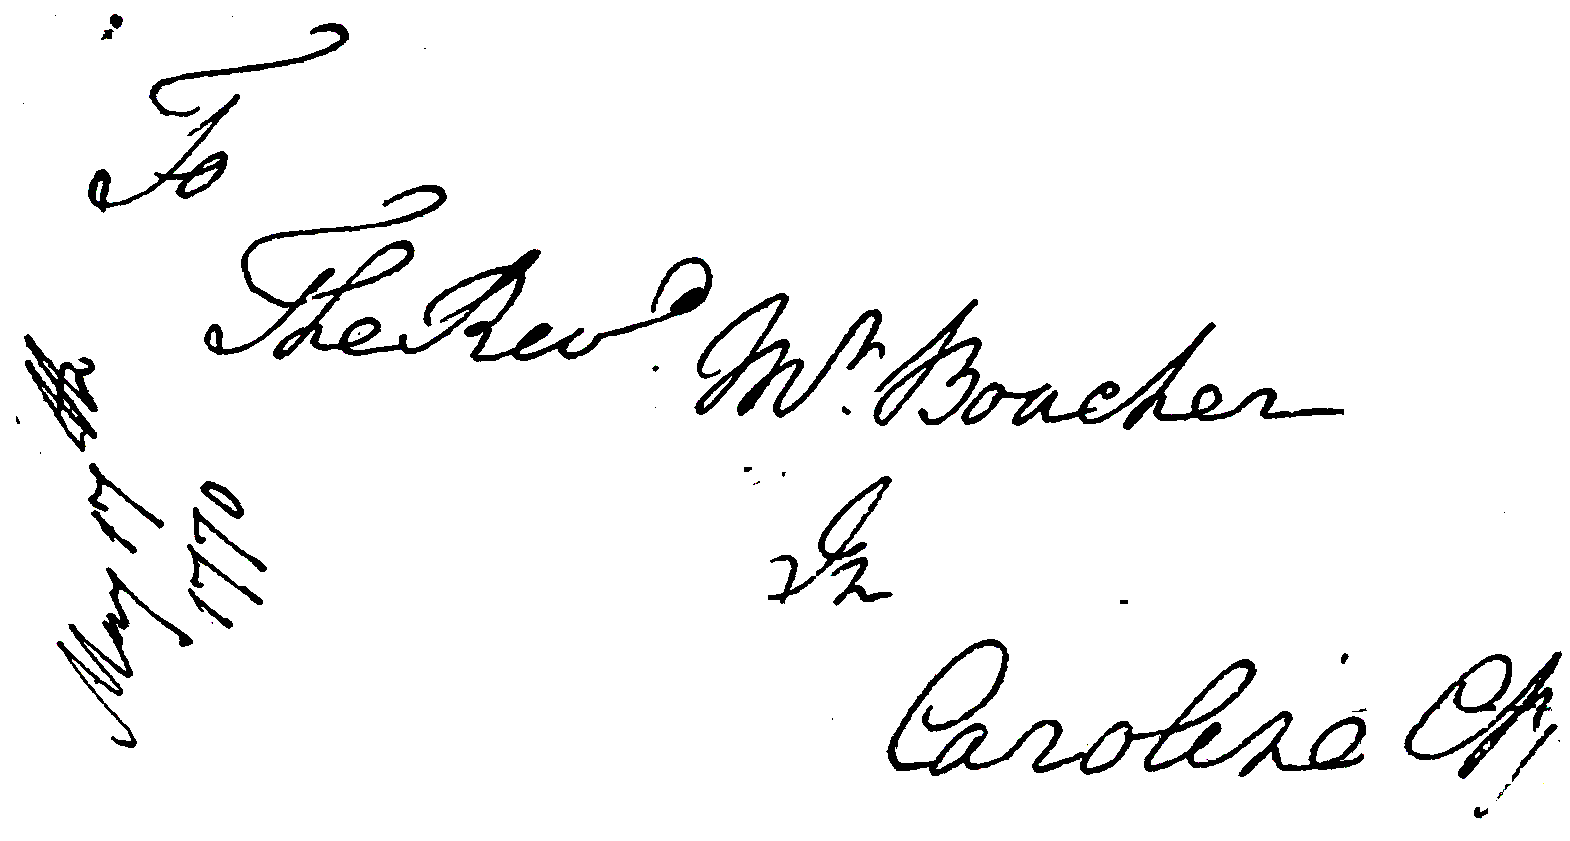 To
The Revd. Mr. Boucher
In
Caroline Cty
May 17
1770